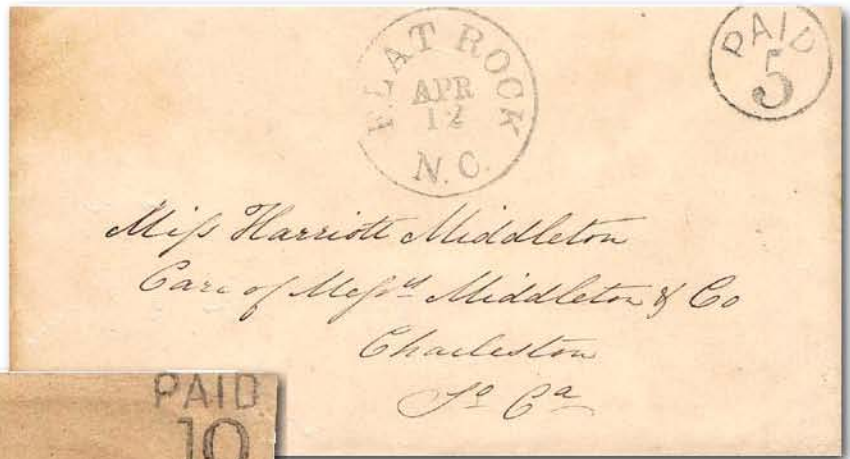 FLAT ROCK
APR
12
N.C.
PAID
5
Miſs Harriott Middleton
Care of Meſsrs Middleton & Co
Charleston
So Ca
PAID
10